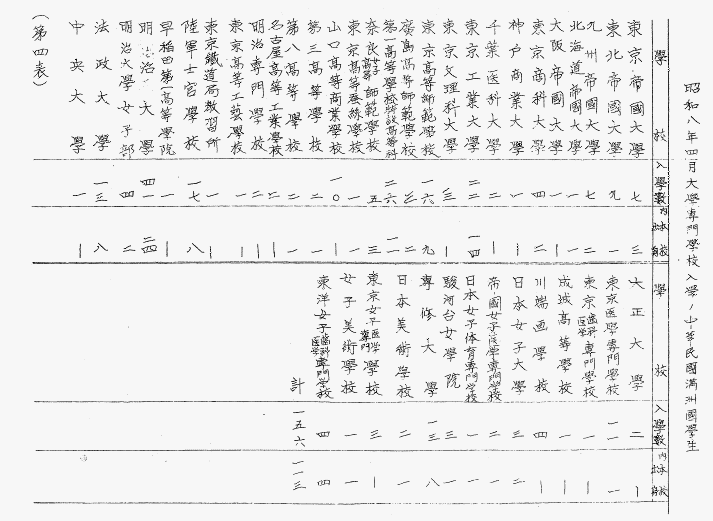 昭和八年四月大學專門學校入學ノ中華民國滿洲國學生
學校 入學數
東京帝國大學 七 三
東北帝國大學 九 一
九州帝國大學 七 二
北海道帝國大學 一 一
大阪帝國大學 一 |
東京商科大學 四 二
神戸商業大學 一 |
千葉医科大學 二 |
東京工業大學 二二 一四
東京文理科大學 三
東京高等師範學校 一六 九
廣島高等師範學校 三
第一高等學校特設高等科 二六
奈良女子高等師範學校 五 三
東京高等蚕絲學校 一
山口高等商業學校 一〇 |
第三高等學校 二 一
第八高等學校 一 一
名古屋高等工業學校 二 |
明治專門學校 二 |
東京高等工藝學校 二 |
東京鐵道局教習所 一 |
陸軍士官學校 一七 八
早稻田第一高等學院 一 |
明治大學 四一 二四
明治大學女子部 四 二
法政大學 一三 八
中央大學 一 |
(第四表)
學校 入學數
大正大學 二 |
東京医學專門學校 一一 一
東京齒科医學專門學校 一 |
成城高等學校 一 |
川端画學校 四 |
日本女子大學 三 二
帝國女子医學專門學校 二 一
日本女子体育專門學校 一 一
駿河台女學院 三 一
專修大學 一三 八
日本美術學校 二 一
東京女子医學專門學校 三 |
女子美術學校 一 一
東洋女子齒科医學專門學校 四 四
計 一五六 一一三